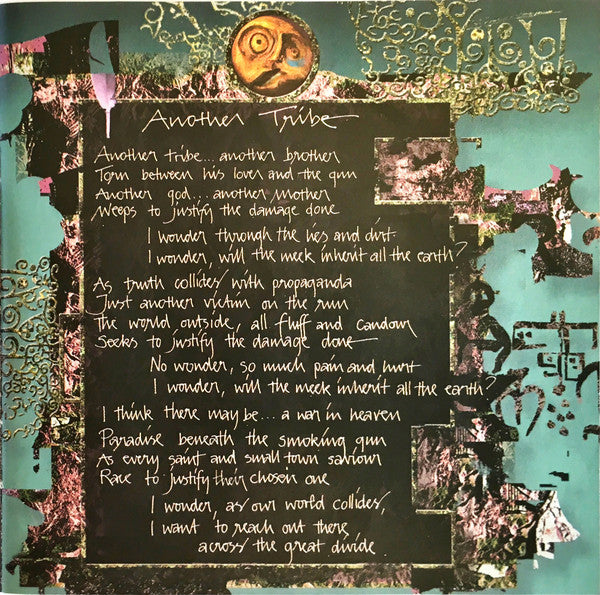 Another Tribe
Another tribe... another brother
Torn between his lover and the gun
Another god... another Mother
Weeps to justify the damage done
I wonder through the lies and dirt
I wonder, will the meek inherit all the earth?
As truth collides with propaganda
Just another victim on the run
The world outside, all fluff and candour
Seeks to justify the damage done
No wonder, so much pain and hurt
I wonder, will the meek inherit all the earth?
I think there may be... a war in heaven
Paradise beneath the smoking gun
As every saint and small town saviour
Race to justify their chosen one
I wonder, as our world collides,
I want to reach out there
across the great divide